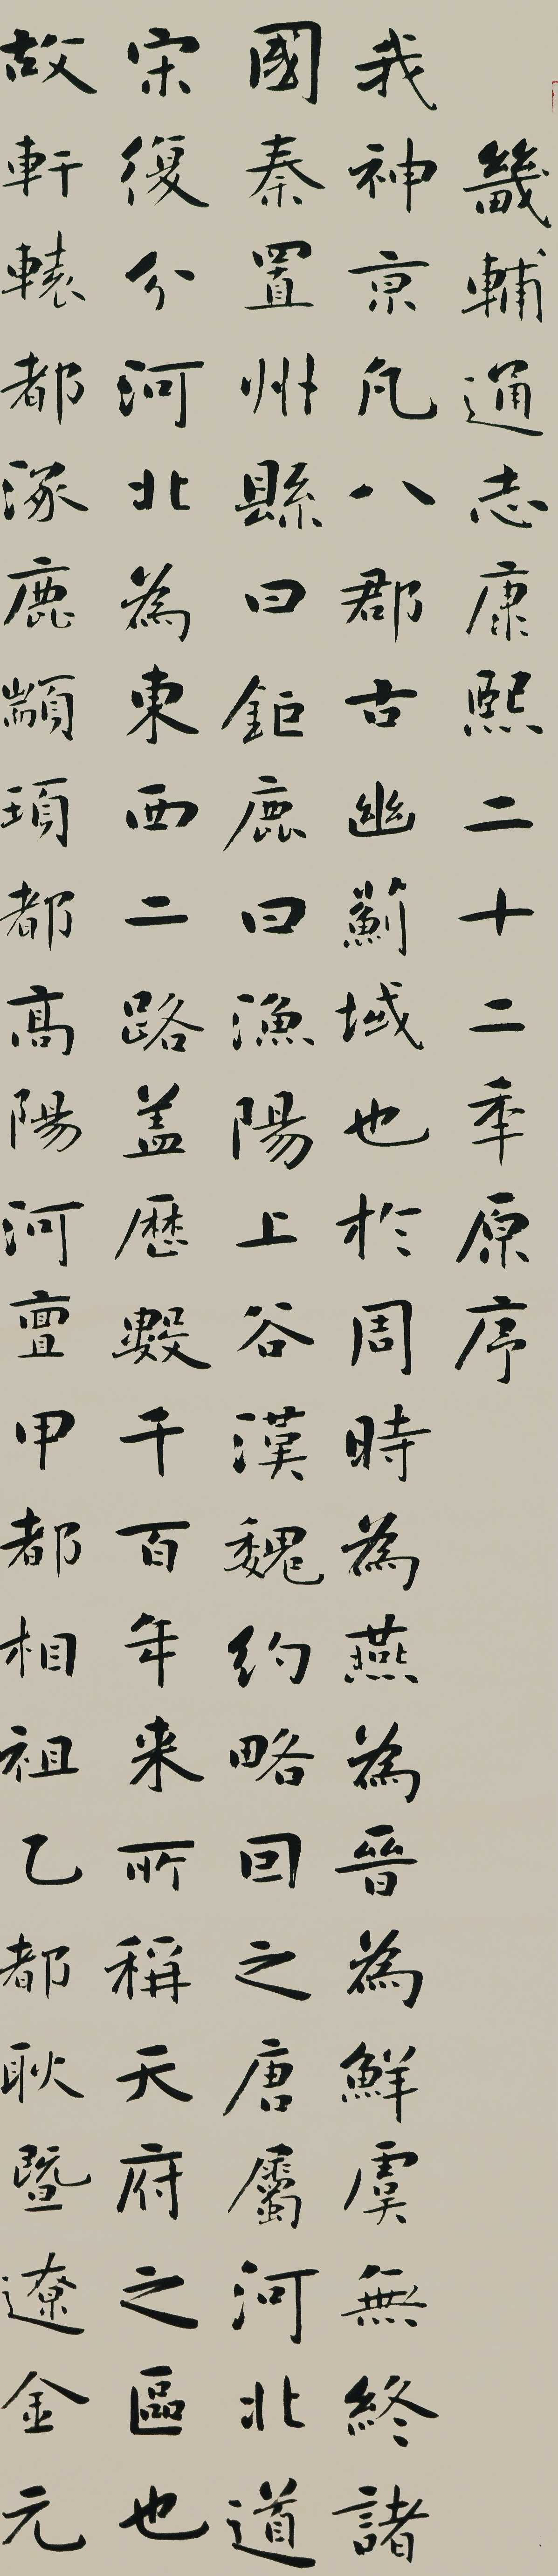 畿輔通志康熙二十二季原序
我神京凡八郡古幽薊域也於周時為燕為晉為鮮虞無終諸
國秦置州縣曰鉅鹿曰漁陽上谷漢魏約略因之唐屬河北道
宋復分河北為東西二路盖歷數千百年来所稱天府之區也
故軒轅都涿鹿顓頊都高陽河亶甲都相祖乙都耿暨遼金元